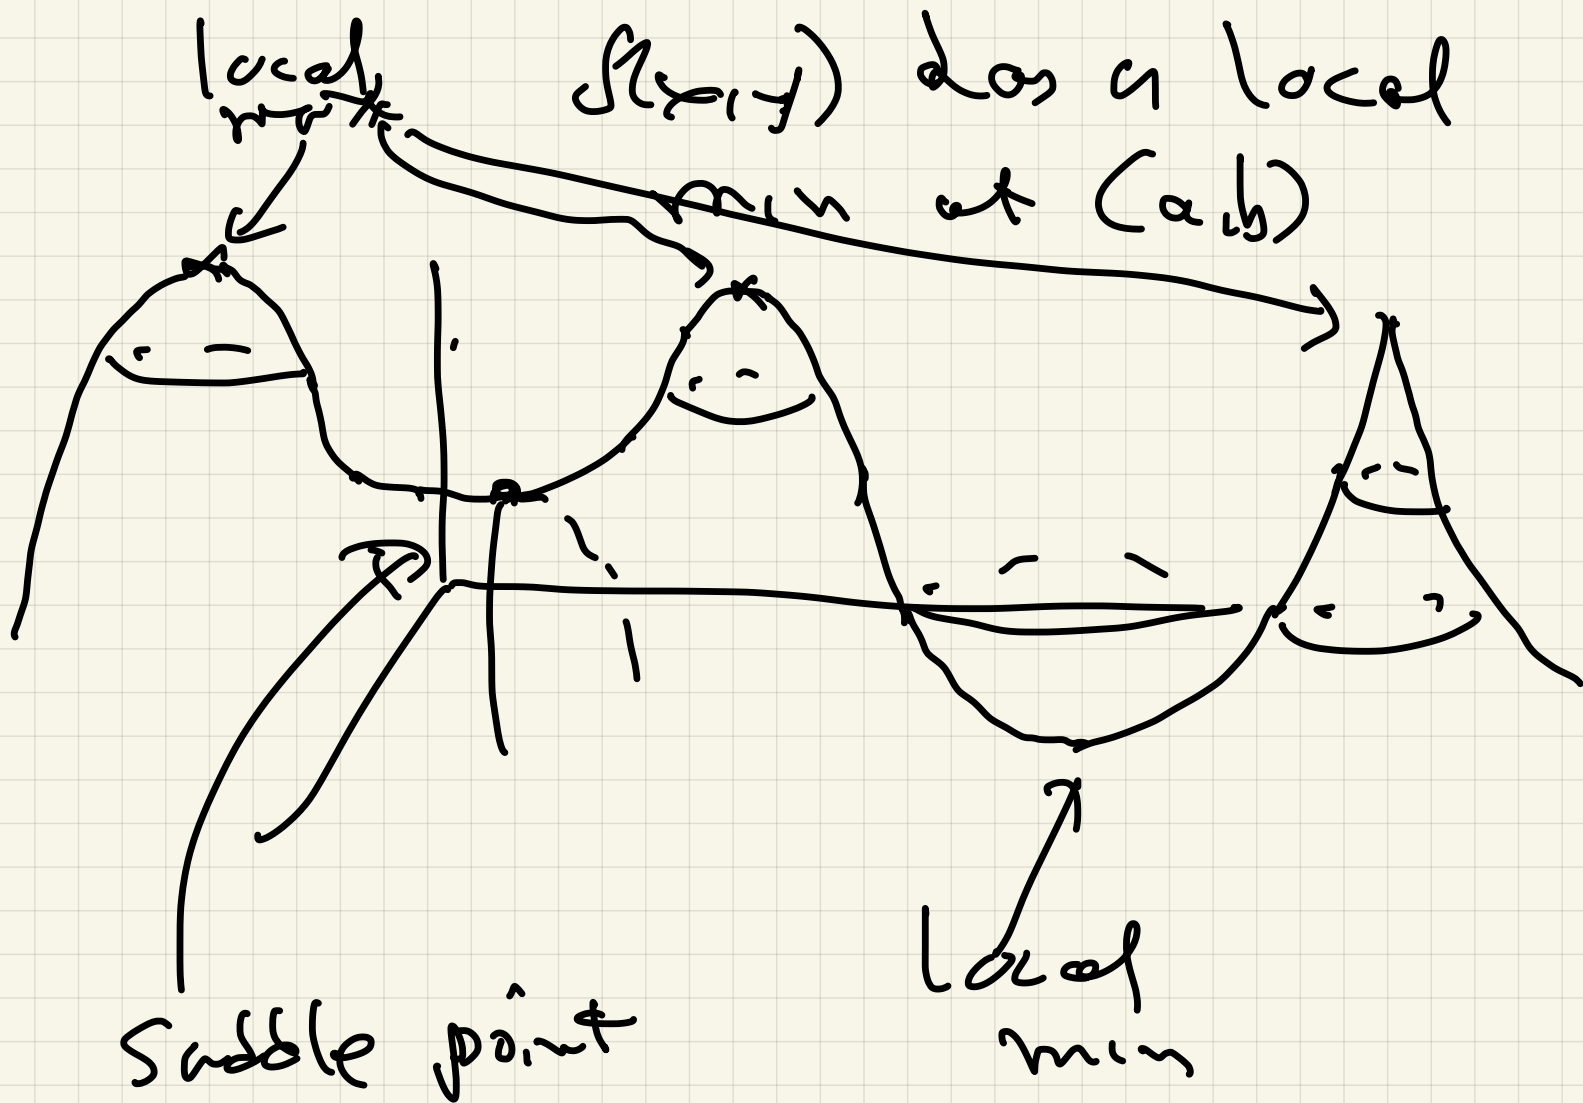 local
max
f(x,y) has a local
min at (a,b)
saddle point
local
min